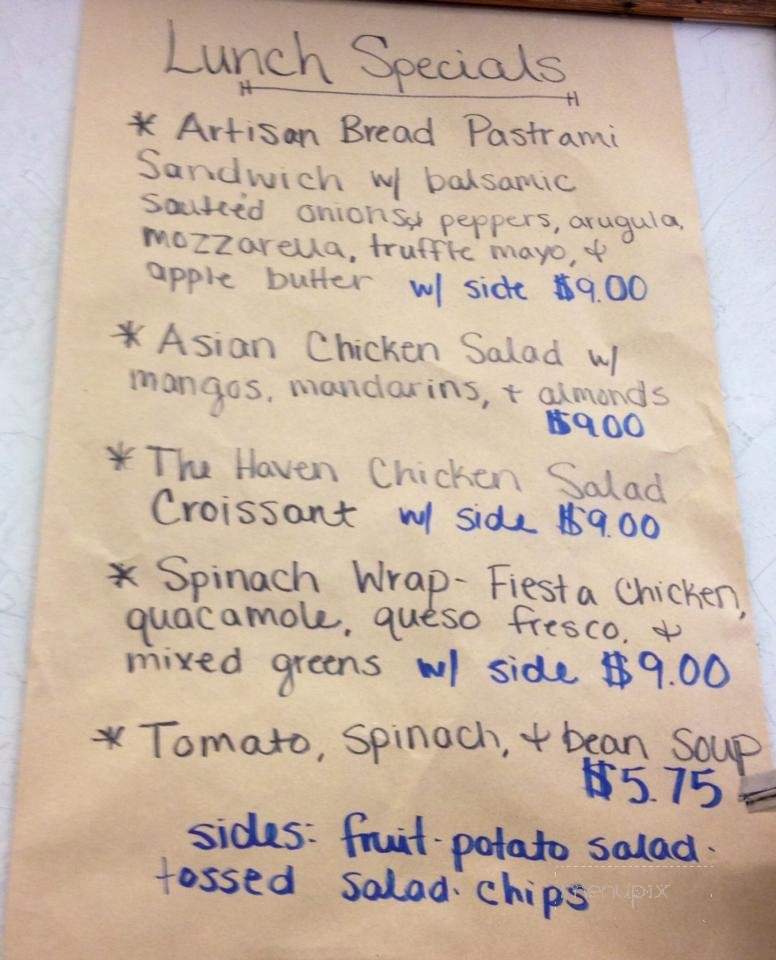 Lunch Specials
* Artisan Bread Pastrami
Sandwich w/ balsamic
sauteéd onions & peppers, arugula,
mozzarella, truffle mayo, &
apple butter w/ side $9.00
* Asian Chicken Salad w/
mangos, mandarins, + almonds
$9.00
* The Haven Chicken Salad
Croissant w/ side $9.00
* Spinach Wrap- Fiesta Chicken,
guacamole, queso fresco, &
mixed greens w/ side $9.00
* Tomato, Spinach, + bean Soup
$5.75
sides: fruit · potato salad ·
tossed salad · chips
menupix